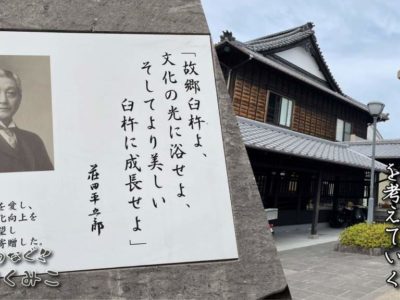 「故郷臼杵よ、
文化の光に浴せよ、
そしてより美しい
臼杵に成長せよ」
荘田平五郎
を愛し、
化向上を
望し
寄贈した。
を考えていく